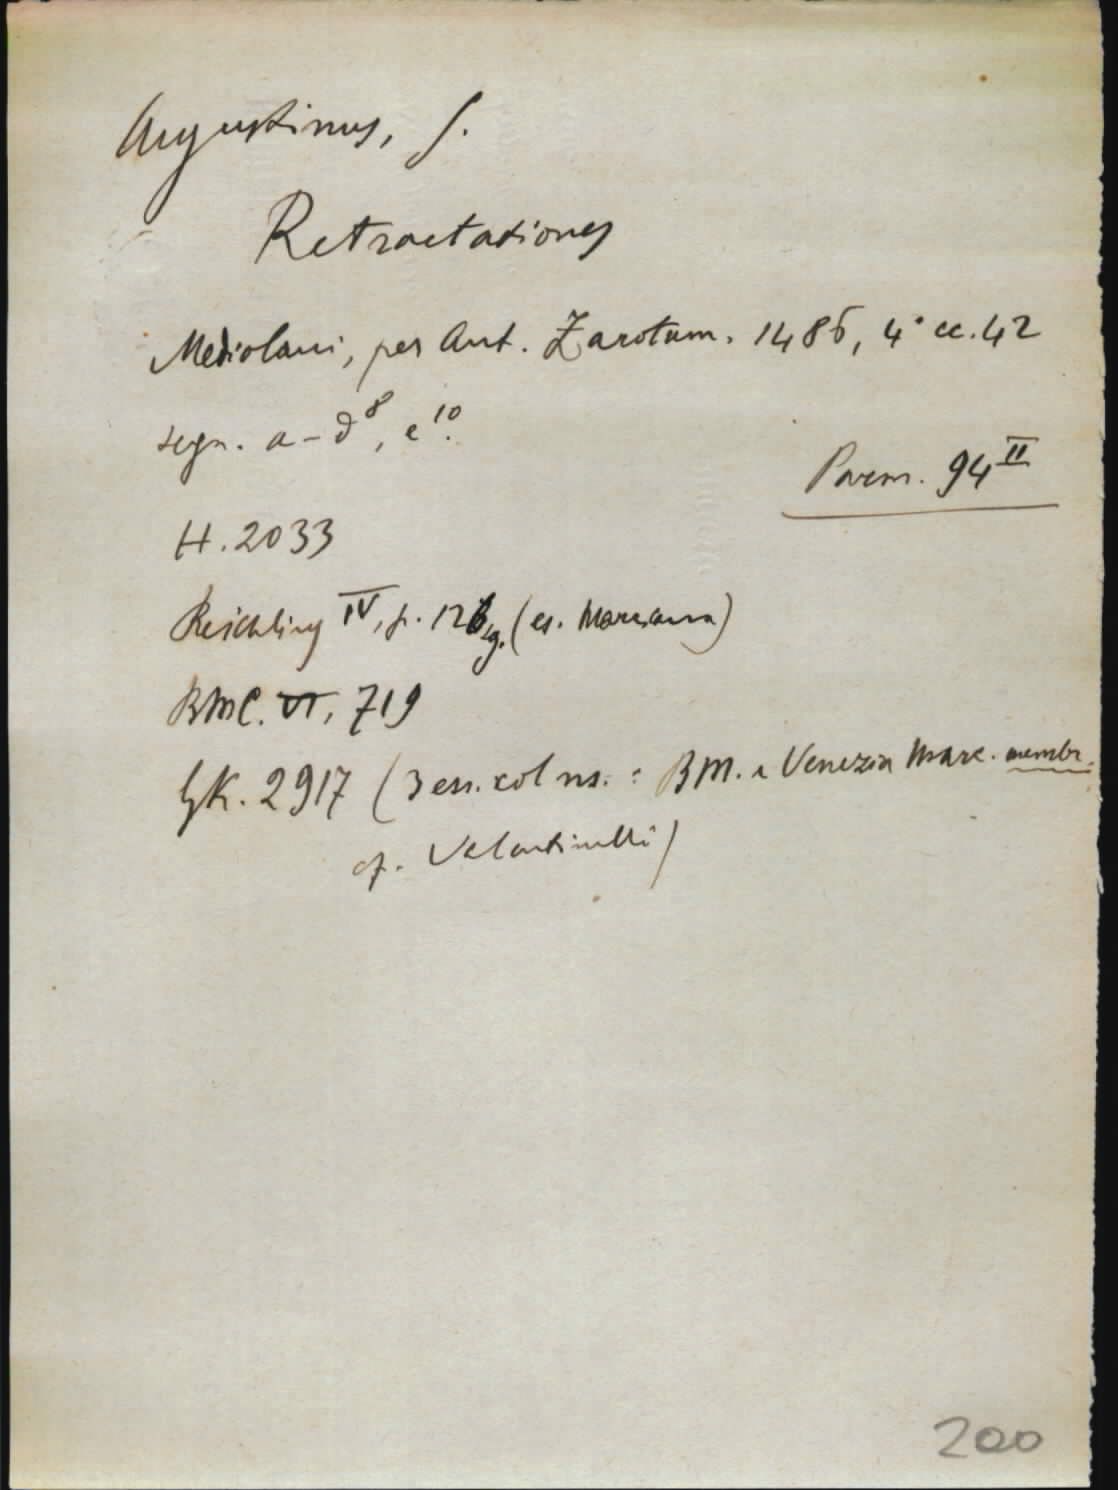 Augustinus, S.
Retractationes
Mediolani, per Ant. Zarotum. 1486, 4° cc. 42
segn. a-d⁸, e¹⁰.
Parm. 94 II
H. 2033
Reichling IV, p. 126 sg. (es. Marciana)
BMC. VI, 719
GK. 2917 (3 ess. col ns. : BM. e Venezia Marc. membr.
cf. Valentinelli)
200